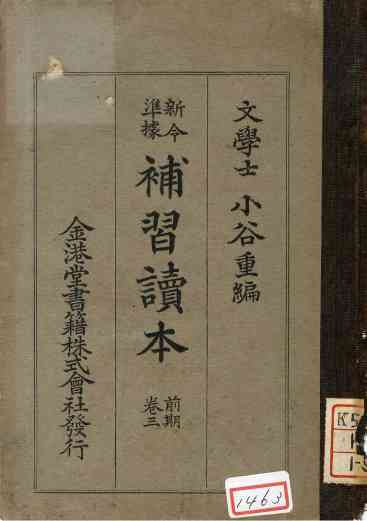 文學士 小谷重編
新令
準據
補習讀本
前期
卷三
金港堂書籍株式會社發行
1463